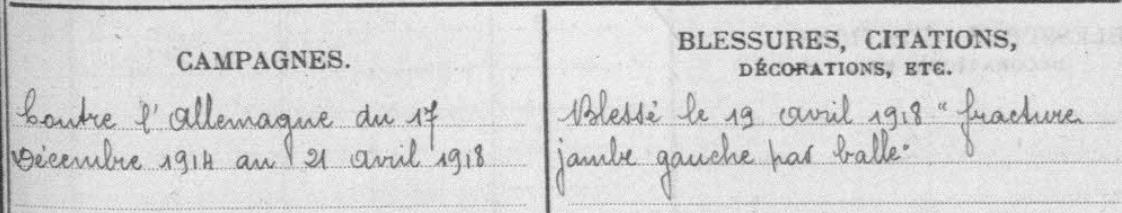 CAMPAGNES.
Contre l'Allemagne du 17
Décembre 1914 au 21 avril 1918
BLESSURES, CITATIONS,
DÉCORATIONS, ETC.
Blessé le 19 avril 1918 "fracture
jambe gauche par balle"